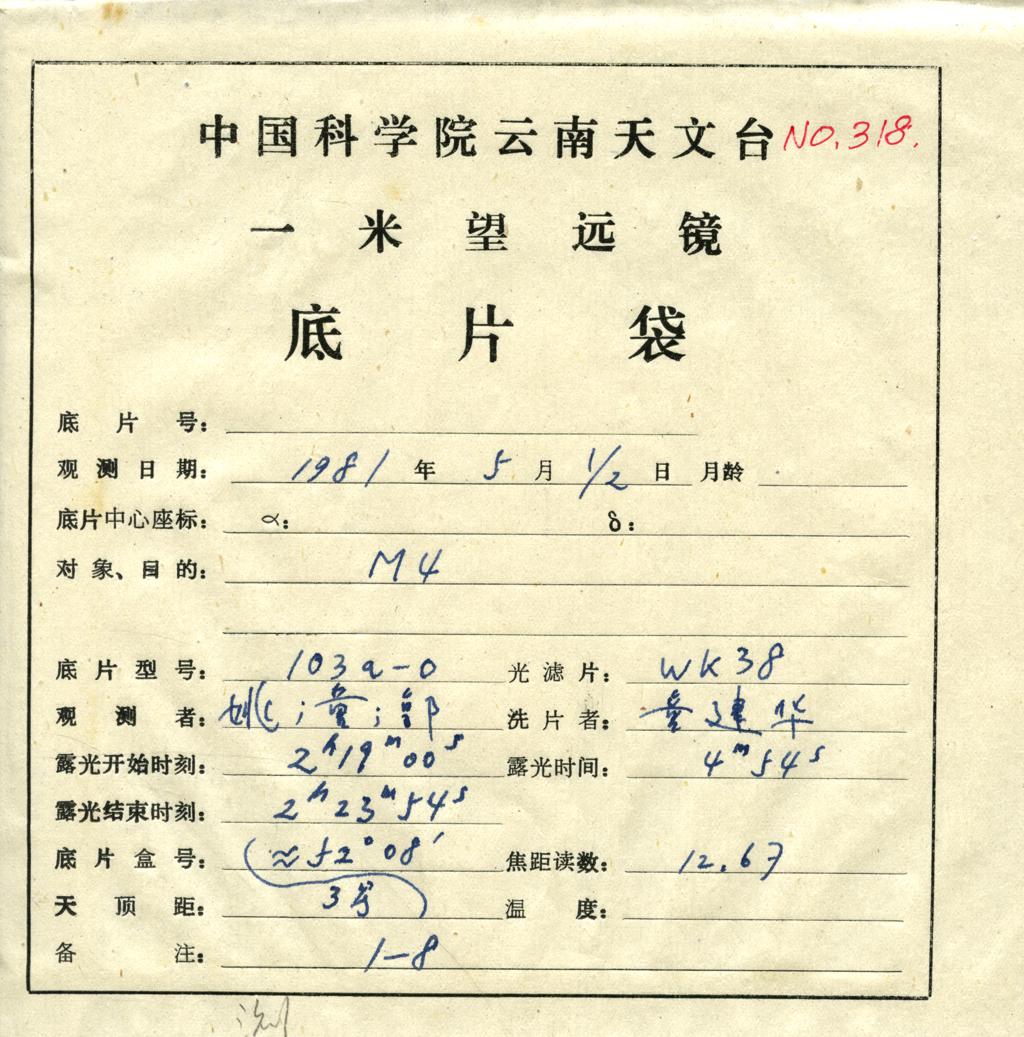 中国科学院云南天文台 NO.318.
一米望远镜
底片袋
底片号:
观测日期: 1981年 5月 1/2日 月龄
底片中心座标: α: δ:
对象、目的: M4
底片型号: 103a-O 光滤片: WK38
观测者: 姚;童;郭 洗片者: 童建华
露光开始时刻: 2h19m00s 露光时间: 4m54s
露光结束时刻: 2h23m54s
底片盒号: ≈52°08′ 焦距读数: 12.67
天顶距: 3号 温度:
备注: 1-8